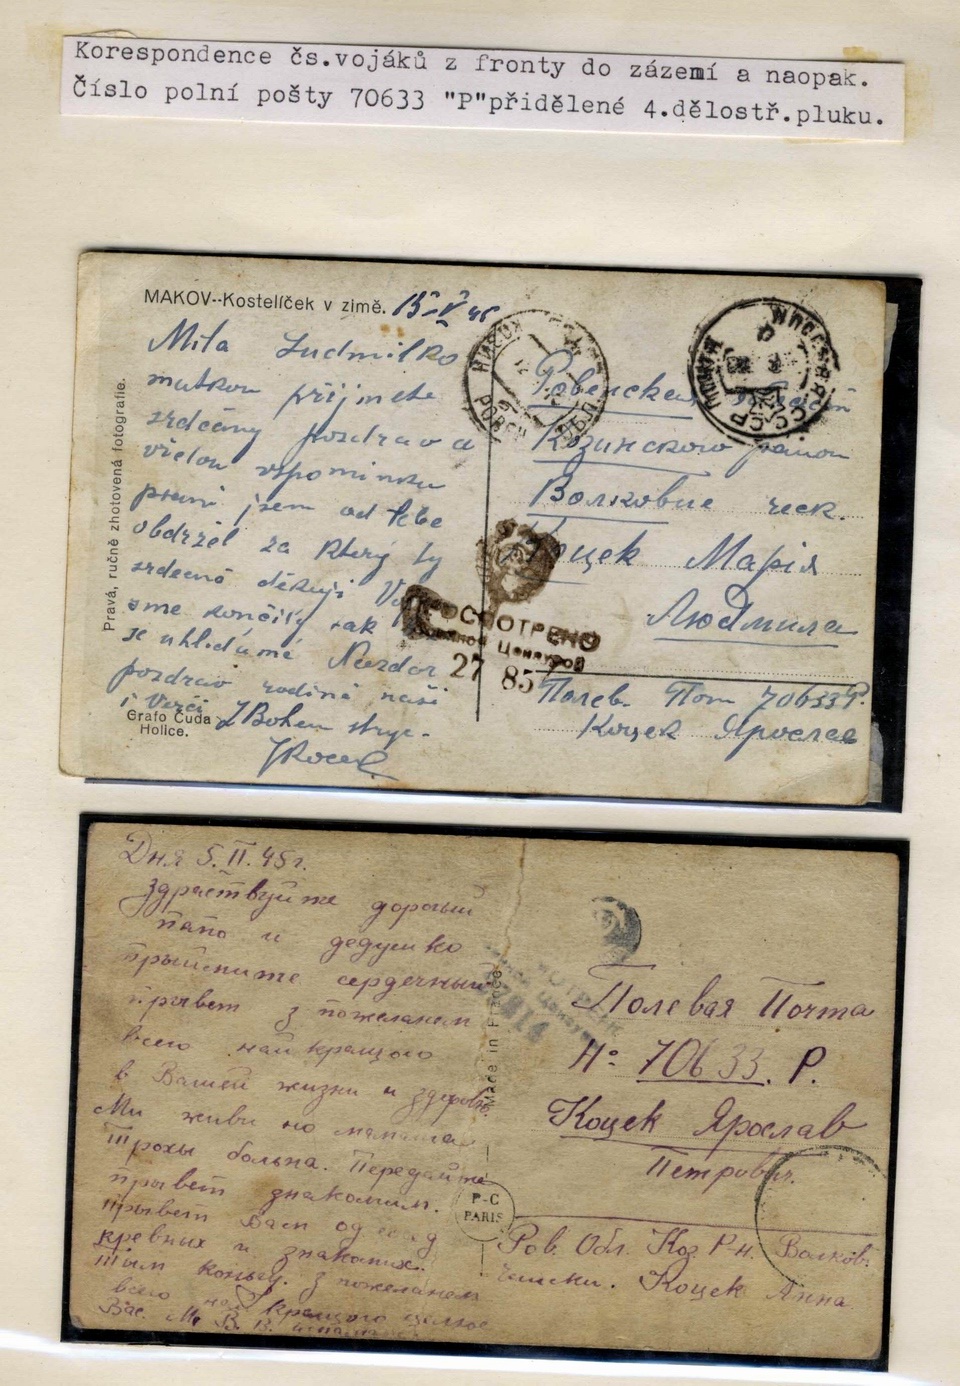 Korespondence čs.vojáků z fronty do zázemí a naopak.
Číslo polní pošty 70633 "P"přidělené 4.dělostř.pluku.
MAKOV--Kostelíček v zimě. 15 V 45
Milá Ludmilko
matkou přijmete
srdečný pozdrav a
vřelou vzpomínku
psaní jsem od tebe
obdržel za který ty
srdečně děkuji
sme končily tak
se uhlídáme Nazdar
pozdrav rodině naší
i Verči
Z Bohem strýc.
JKocek
Pravá, ručně zhotovená fotografie.
Grafo Čuda
Holice.
Ровенская
Козинского район
Волковые чеck.
Коцек Марія
Людмила
ПРОСМОТРЕНО
Военной Цензурой
27 85
Полев. Поч 70633 P.
Коцек Ярослав
СССР
Дня 5.II.45г.
Здраствуйте дорогый
папо и дедушко
прыймите сердечный
прывет з пожеланем
всего найкращого
в Вашей жизни и здоровю.
Ми живи но мамаша
трохы больна. Передайте
прывет знакомим.
прывет Вам од
кревных и знакомих.
тым коньчу. з пожеланем
всего най кращого
Made in France
P-C
PARIS
Полевая Почта
№ 70633. P.
Коцек Ярослав
Петрович.
Ров. Обл. Коз Р-н. Волков.
чешски. Коцек Анна